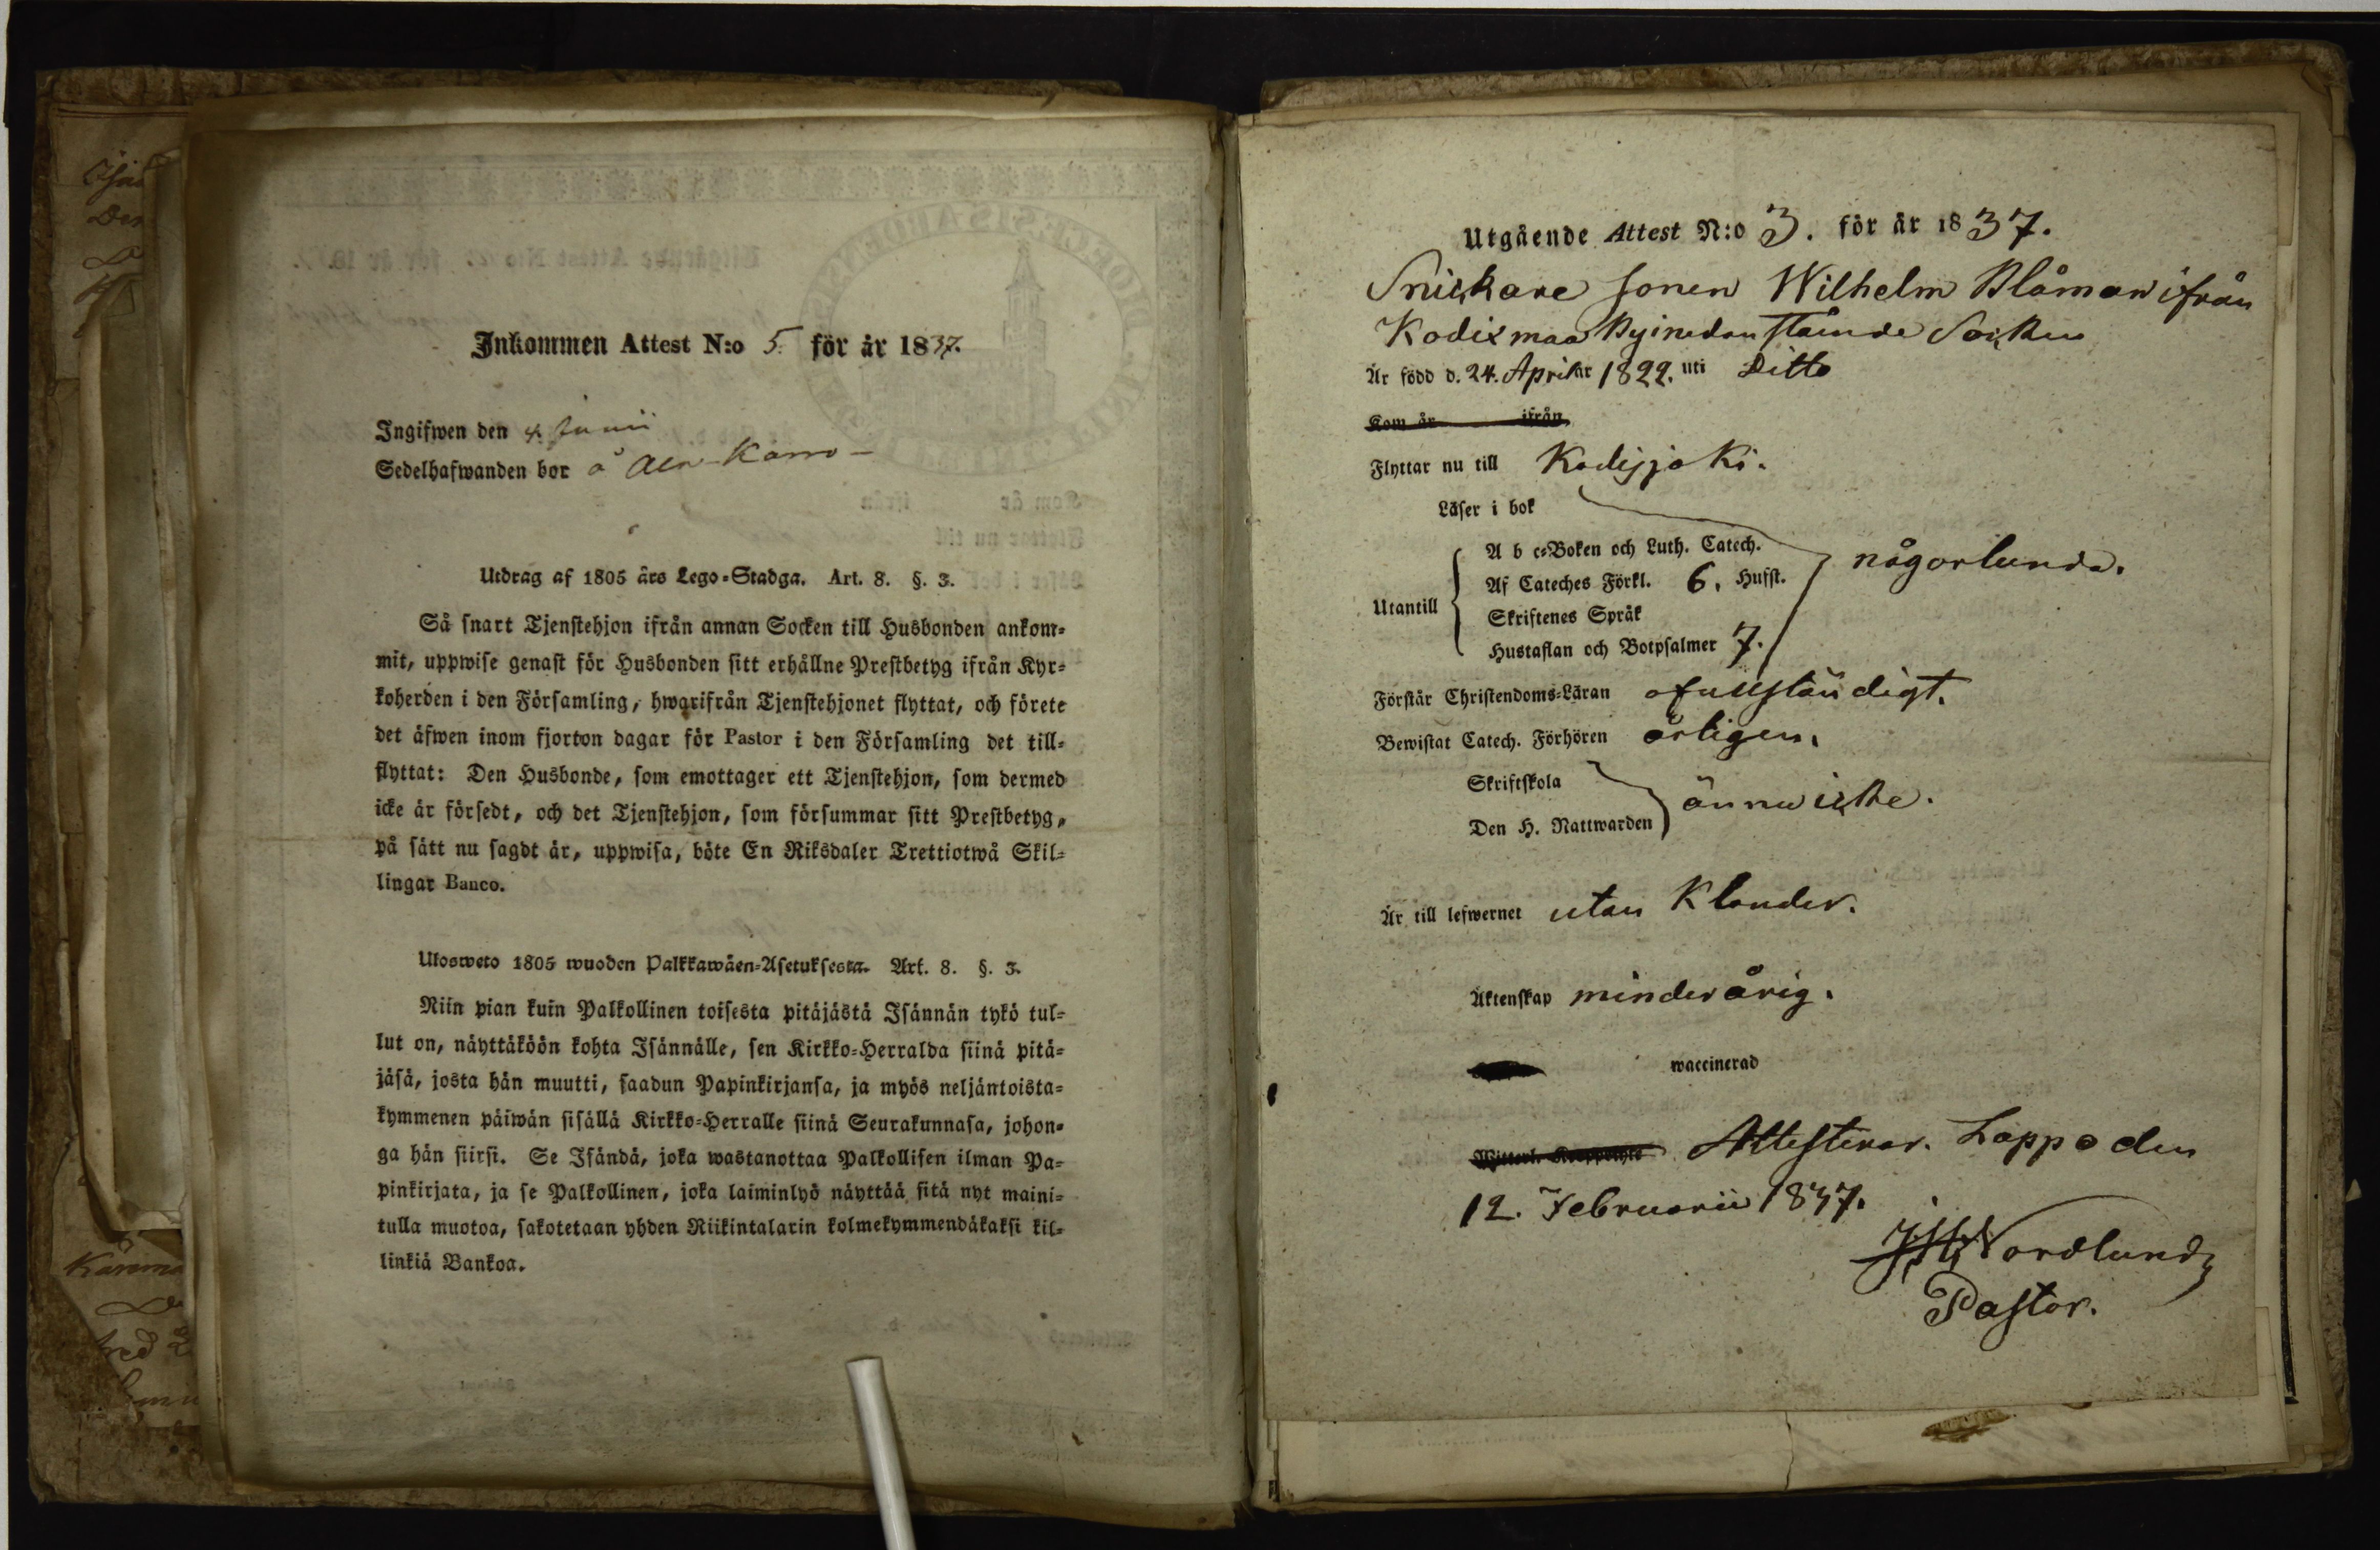 Inkommen Attest N:o 5. för år 1837.
Ingifwen den 4 Junii
Sedelhafwanden bor å Ala-Karro
Utdrag af 1805 års Lego-Stadga. Art. 8. §. 3.
Så snart Tjenstehjon ifrån annan Socken till Husbonden ankom-
mit, uppwise genast för Husbonden sitt erhållne Prestbetyg ifrån Kyr-
koherden i den Församling, hwarifrån Tjenstehjonet flyttat, och förete
det äfwen inom fjorton dagar för Pastor i den Församling det till-
flyttat: Den Husbonde, som emottager ett Tjenstehjon, som dermed
icke är försedt, och det Tjenstehjon, som försummar sitt Prestbetyg,
på sätt nu sagdt är, uppwisa, böte En Riksdaler Trettiotwå Skil-
lingar Banco.
Ulosweto 1805 wuoden Palkkawäen-Asetuksesta. Art. 8. §. 3.
Niin pian kuin Palkollinen toisesta pitäjästä Isännän tykö tul-
lut on, näyttäköön kohta Isännälle, sen Kirkko-Herralda siinä pitä-
jäsä, josta hän muutti, saadun Papinkirjansa, ja myös neljäntoista-
kymmenen päiwän sisällä Kirkko-Herralle siinä Seurakunnasa, johon-
ga hän siirsi. Se Isändä, joka wastanottaa Palkollisen ilman Pa-
pinkirjata, ja se Palkollinen, joka laiminlyö näyttää sitä nyt maini-
tulla muotoa, sakotetaan yhden Riikintalarin kolmekymmendäkaksi kil-
linkiä Bankoa.
Utgående Attest N:o 3. för år 1837.
Snickare sonen Wilhelm Blåman ifrån
Kodixmaa By i nedanstående Socken
Är född d. 24. April år 1822. uti Ditto
Kom år ifrån
Flyttar nu till Kodisjoki.
Läser i bok
A b c-Boken och Luth. Catech.
någorlunda.
Af Cateches Förkl. 6. Hufst.
Utantill
Skriftenes Språk
Hustaflan och Botpsalmer 7.
Förstår Christendoms-Läran ofullständigt.
Bewistat Catech. Förhören årligen.
Skriftskola
ännu icke.
Den H. Nattwarden
Är till lefwernet utan Klander.
Äktenskap minderårig.
waccinerad
Attesterar. Lappo den
12. Februarii 1837.
Nordlund
Pastor.